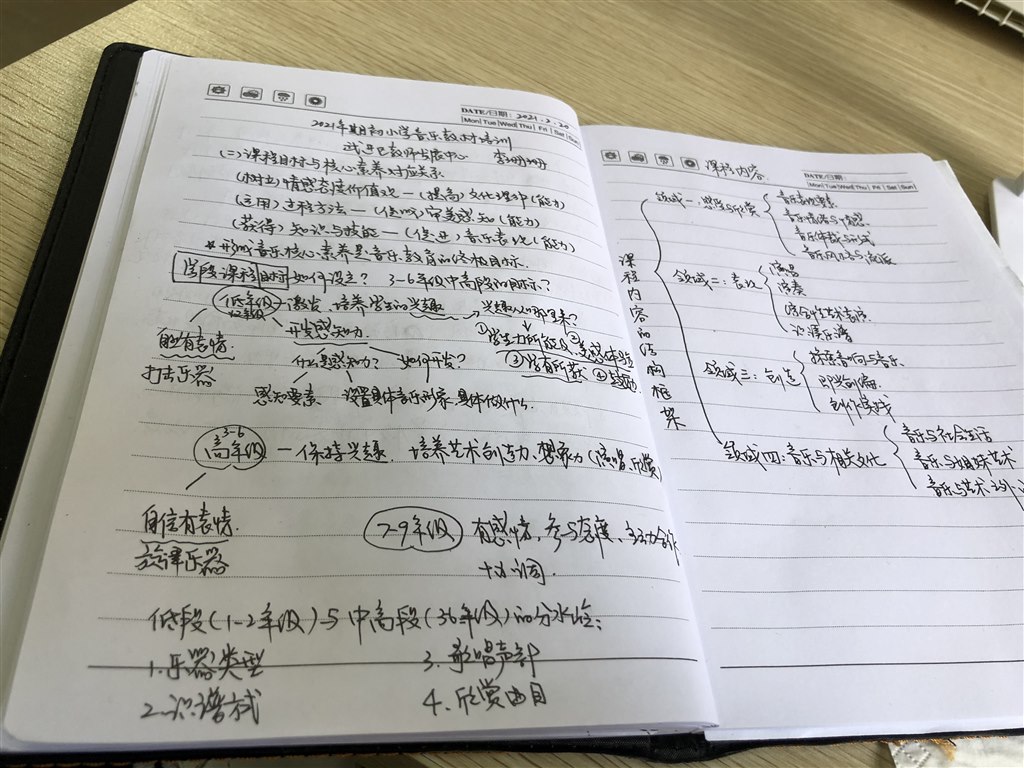 DATE/日期: 2021.2.20
Mon Tue Wed Thu Fri Sat Sun
2021年期初小学音乐教师培训
武进区教师发展中心
(二)课程目标与核心素养对应关系
(树立)情感态度价值观—(提高)文化理解(能力)
(运用)过程方法—(促成)审美感知(能力)
(获得)知识与技能—(促进)音乐表现(能力)
*形成音乐核心素养是音乐教育的终极目标.
学段课程目标 如何设立? 3-6年级中高段的目标?
低年级 激发、培养学生的兴趣 → 兴趣从哪里来?
开发感知力 ①学生力所能及 ②美感体验
自然有表情. 什么是感知力? 如何开发? ③学有所获 ④鼓励
打击乐器
感知要素 设置具体音乐形象,具体做什么.
3-6
高年级 —保持兴趣. 培养艺术创造力、想象力(演唱、欣赏)
自信有表情. 7-9年级 有感情、参与态度、主动合作
旋律乐器 协调.
低段(1-2年级)与中高段(36年级)的分水岭:
1.乐器类型 3.歌唱声部
2.识谱方式 4.欣赏曲目
课程内容
DATE/日期:
Mon Tue Wed Thu Fri Sat Sun
课程内容的结构框架
领域一:感受与欣赏
音乐表现要素
音乐情绪与情感
音乐体裁与形式
音乐风格与流派
领域二:表现
演唱
演奏
综合性艺术表演
识读乐谱
领域三:创造
探索音响与音乐
即兴创编
创作实践
领域四:音乐与相关文化
音乐与社会生活
音乐与姐妹艺术
音乐与艺术